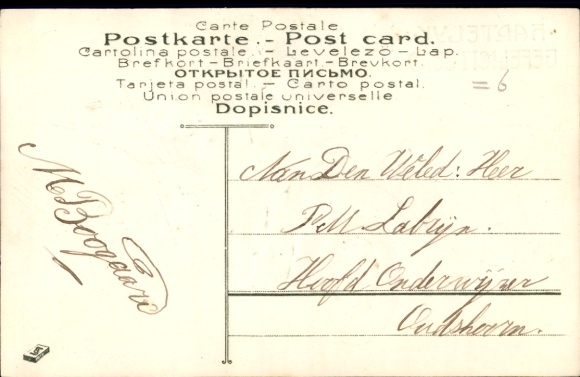 Carte Postale
Postkarte.- Post card.
Cartolina postale. - Levelezö - Lap.
Brefkort - Briefkaart - Brevkort.
ОТКРЫТОЕ ПИСЬМО.
Tarjeta postal. - Carto postal.
Union postale universelle
Dopisnice.
= 6
M Boogaard
Aan Den WelEd: Heer
P M Labryn.
Hoofd Onderwijzer
Oudshoorn.